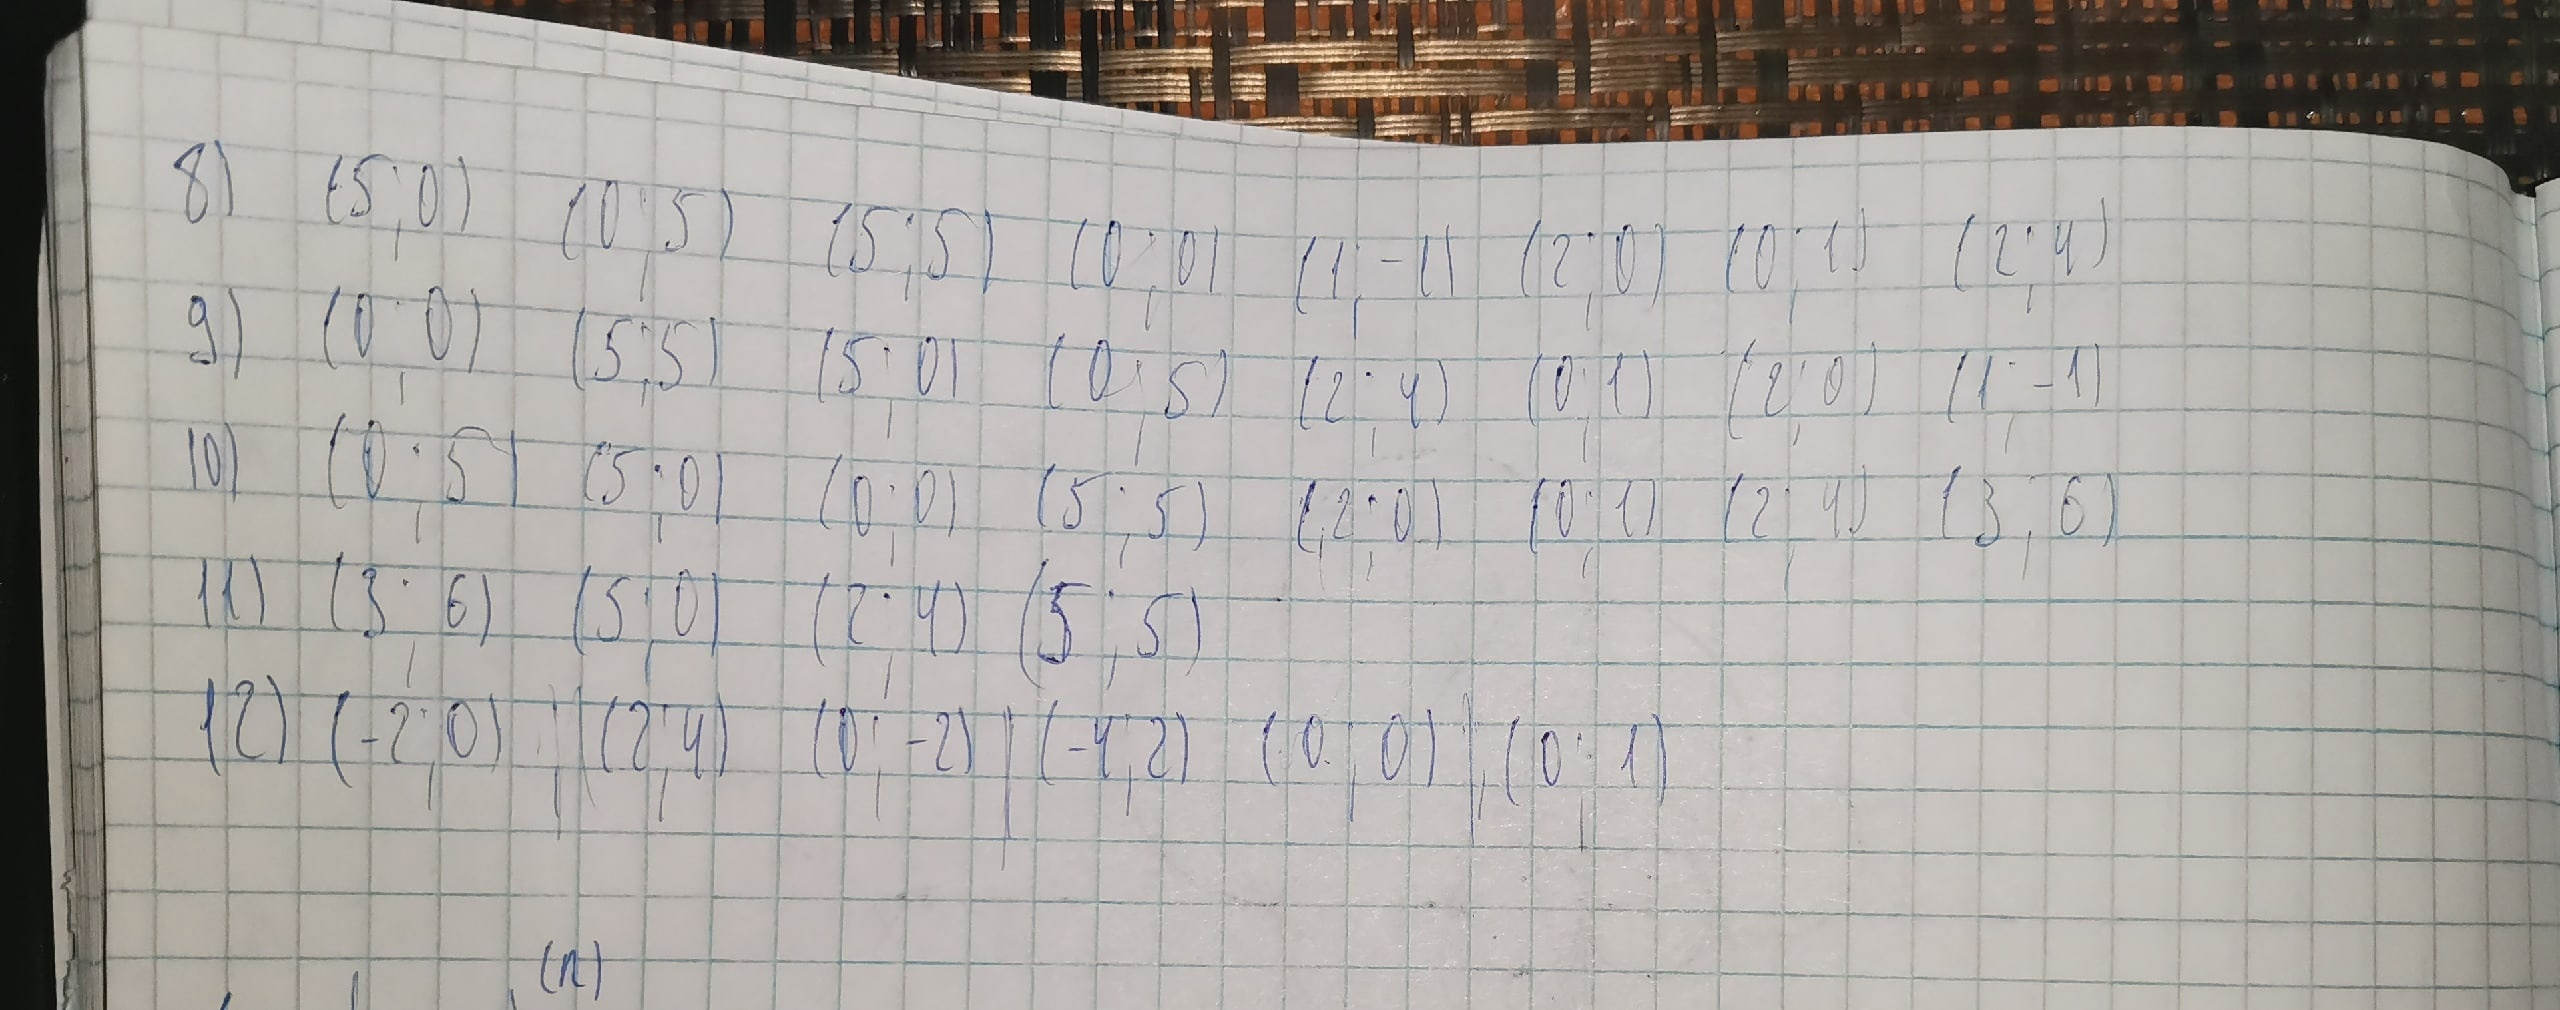 8) (5;0) (0;5) (5;5) (0;0) (1;-1) (2;0) (0;1) (2;4)
9) (0;0) (5;5) (5;0) (0;5) (2;4) (0;1) (2;0) (1;-1)
10) (0;5) (5;0) (0;0) (5;5) (2;0) (0;1) (2;4) (3;6)
11) (3;6) (5;0) (2;4) (5;5)
12) (-2;0), (2;4) (0;-2) | (-4;2) (0;0) |, (0;1)
(n)